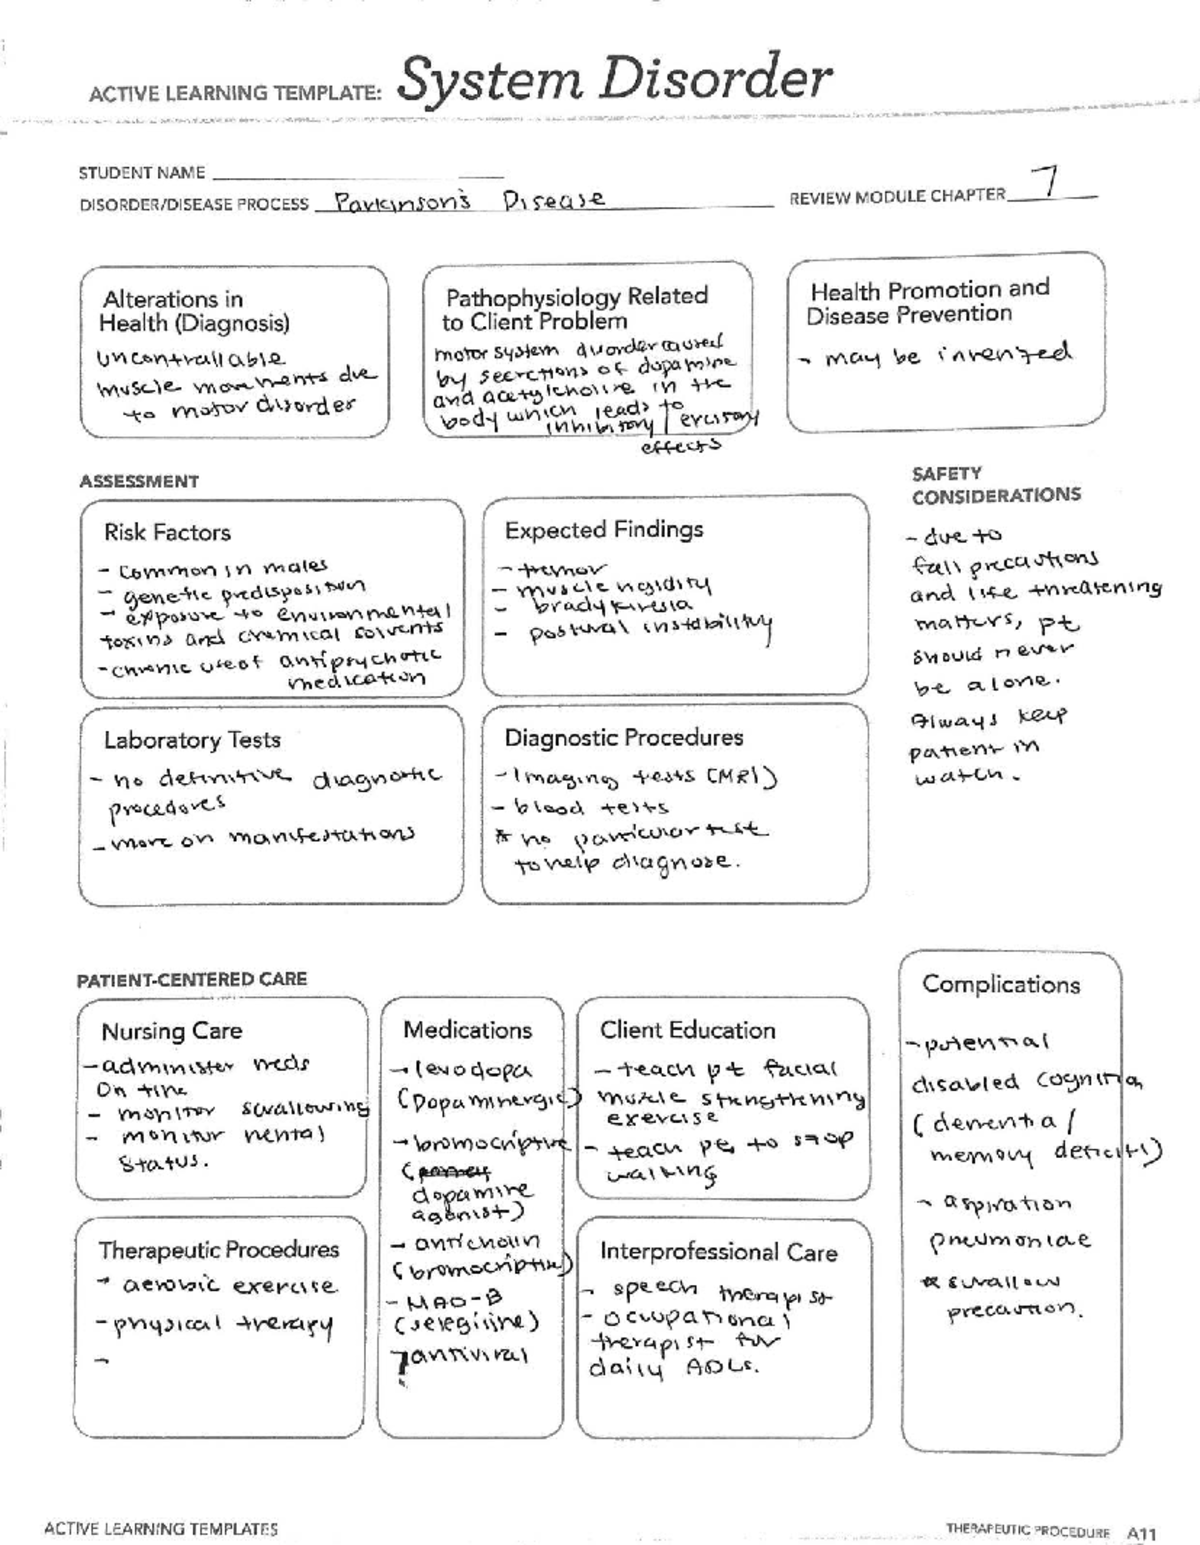 ACTIVE LEARNING TEMPLATE: System Disorder
STUDENT NAME
DISORDER/DISEASE PROCESS Parkinson's Disease
REVIEW MODULE CHAPTER 7
Alterations in
Health (Diagnosis)
uncontrallable
muscle movments due
to motor disorder
Pathophysiology Related
to Client Problem
motor system disorder caused
by secretions of dopamine
and acetylcholine in the
body which leads to
inhibitory /
effects
Health Promotion and
Disease Prevention
- may be
ASSESSMENT
Risk Factors
- common in males
- genetic predisposition
- exposure to environmental
toxins and chemical solvents
- chronic use of antipsychotic
medication
Expected Findings
- tremor
- muscle rigidity
- bradykinesia
- postural instability
SAFETY
CONSIDERATIONS
- due to
fall precautions
and life threatening
matters, pt
should never
be alone.
Always keep
patient in
watch.
Laboratory Tests
- no definitive diagnostic
procedores
- more on manifestations
Diagnostic Procedures
- Imaging tests (MRI)
- blood tests
* no particular test
to help diagnose.
PATIENT-CENTERED CARE
Nursing Care
- administer meds
On time
- monitor swallowing
- monitor mental
status.
Medications
- levodopa
(Dopaminergic)
- bromocriptine
(
dopamine
agonist)
- anticholin
(bromocriptine)
- MAO-B
(selegiline)
? antiviral
Client Education
- teach pt facial
muscle strengthening
exercise
- teach to stop
walking
Complications
- potential
disabled cognition
(dementia/
memory deficits)
- aspiration
pneumoniae
* swallow
precaution.
Therapeutic Procedures
- aerobic exercise
- physical therapy
-
Interprofessional Care
- speech therapist
- occupational
therapist for
daily ADLs.
ACTIVE LEARNING TEMPLATES
THERAPEUTIC PROCEDURE A11